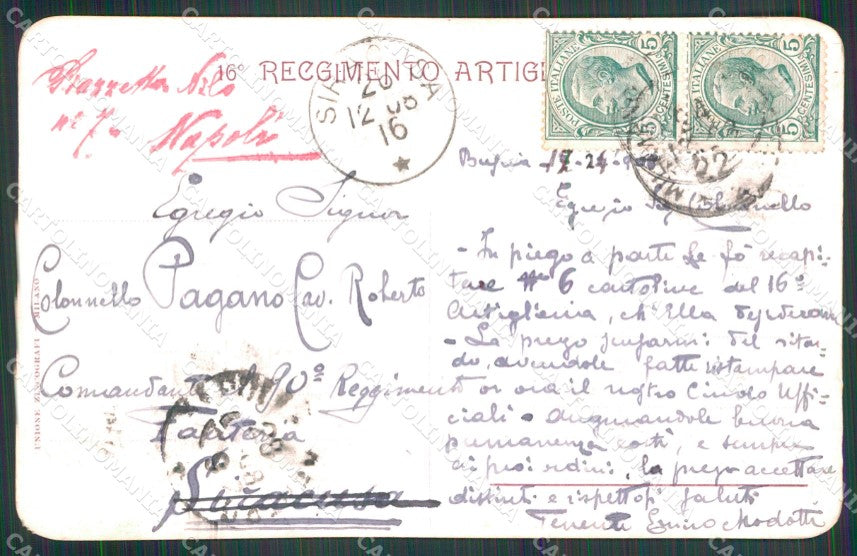 16° REGGIMENTO ARTIG
Piazzetta Nilo
n° 7
Napoli
SIRACUSA
12 08
16
POSTE ITALIANE
CENTESIMI
5
5
POSTE ITALIANE
CENTESIMI
5
5
Egregio Signor
Colonnello Pagano Cav. Roberto
Comandante 30° Reggimento
Fanteria
Siracusa
UNIONE ZINCOGRAFI MILANO
Egregio Sig. Colonnello
- In piego a parte Le fò recapi-
tare N° 6 cartoline del 16°
Artiglieria, ch'Ella desiderava
- La prego scusarmi del ritar-
do, avendole fatte ristampare
or ora il nostro Circolo Uffi-
ciali - augurandole buona
permanenza costì, e sempre
ai suoi ordini, la prego accettare
distinti e rispettosi saluti
Tenente Enrico
CARTOLINOMANIA